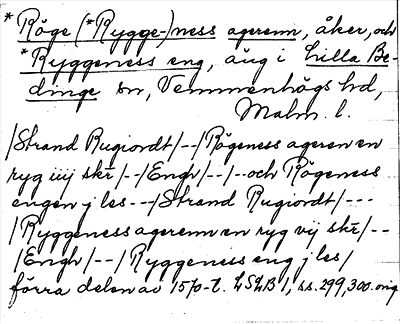 * Röge (*Rygge-)ness ageren, åker, och
*Ryggeness eng, äng i Lilla Be-
dinge sn, Vemmenhögs hd,
Malm. l.
/Strand Rugiordt/--/Rögeness ageren en
ryg iiij skr/--/Engh/--/--och Rögeness
engen j les---/Strand Rugiordt/---
/Ryggeness ageren en ryg vij skr/--
/Engh/--/Ryggeness eng j les/
förra delen av 1570-t. LSLB 1, ss. 299, 300. orig